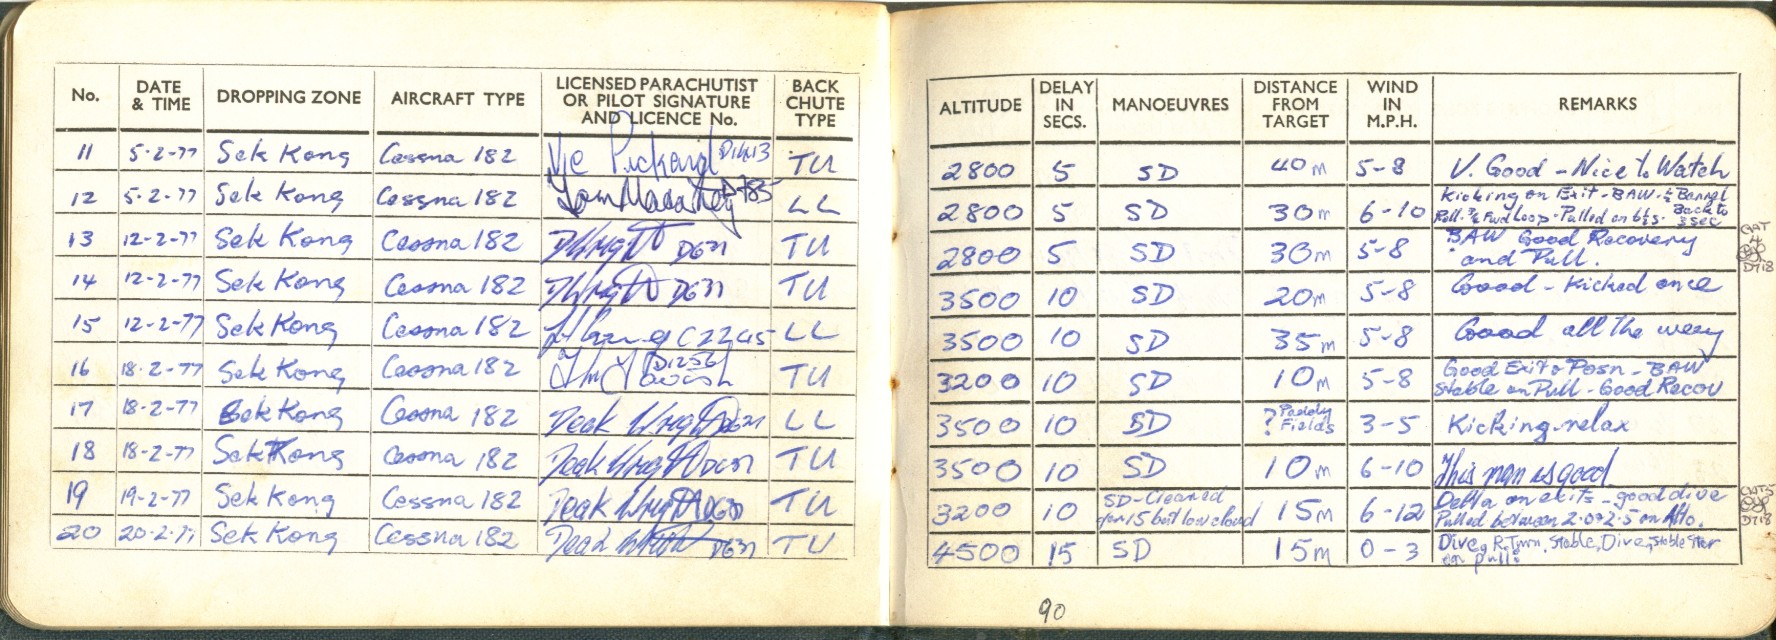 No. DATE & TIME DROPPING ZONE AIRCRAFT TYPE LICENSED PARACHUTIST OR PILOT SIGNATURE AND LICENCE No. BACK CHUTE TYPE
11 5-2-77 Sek Kong Cessna 182 Vic Pickard D1413 TU
12 5-2-77 Sek Kong Cessna 182 D785 LL
13 12-2-77 Sek Kong Cessna 182 DWright D631 TU
14 12-2-77 Sek Kong Cessna 182 DWright D631 TU
15 12-2-77 Sek Kong Cessna 182 C2245 LL
16 18-2-77 Sek Kong Cessna 182 D1256 TU
17 18-2-77 Sek Kong Cessna 182 Deak Wright D631 LL
18 18-2-77 Sek Kong Cessna 182 Deak Wright D631 TU
19 19-2-77 Sek Kong Cessna 182 Deak Wright D631 TU
20 20-2-77 Sek Kong Cessna 182 Deak Wright D631 TU
ALTITUDE DELAY IN SECS. MANOEUVRES DISTANCE FROM TARGET WIND IN M.P.H. REMARKS
2800 5 SD 40m 5-8 V. Good - Nice to Watch
2800 5 SD 30m 6-10 Kicking on Exit - BAW - ½ Barrel Roll. ¾ Fwd Loop - Pulled on 6½s. Back to 3 sec
2800 5 SD 30m 5-8 BAW Good Recovery and Pull.
CAT 4
D718
3500 10 SD 20m 5-8 Good - Kicked once
3500 10 SD 35m 5-8 Good all the way
3200 10 SD 10m 5-8 Good Exit & Posn - BAW Stable on Pull - Good Recov
3500 10 SD ? Paddy Fields 3-5 Kicking relax
3500 10 SD 10m 6-10 This man is good
3200 10 SD - Cleared for 15 but low cloud 15m 6-12 Delta on exits - good dive Pulled between 2.0 & 2.5 on Alto.
CAT 5
D718
4500 15 SD 15m 0-3 Dive, R.Turn, Stable, Dive, Stable Star on pull.
90